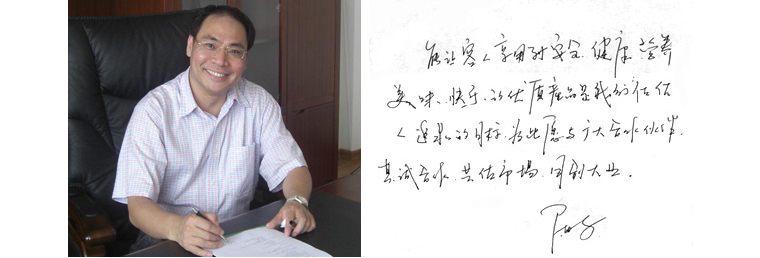 能让客人享用到安全、健康、营养
美味、快乐、的优质产品是我们佰佰
人追求的目标、为此愿与广大合水伙伴、
真诚合水、共佔市场、同创大业。